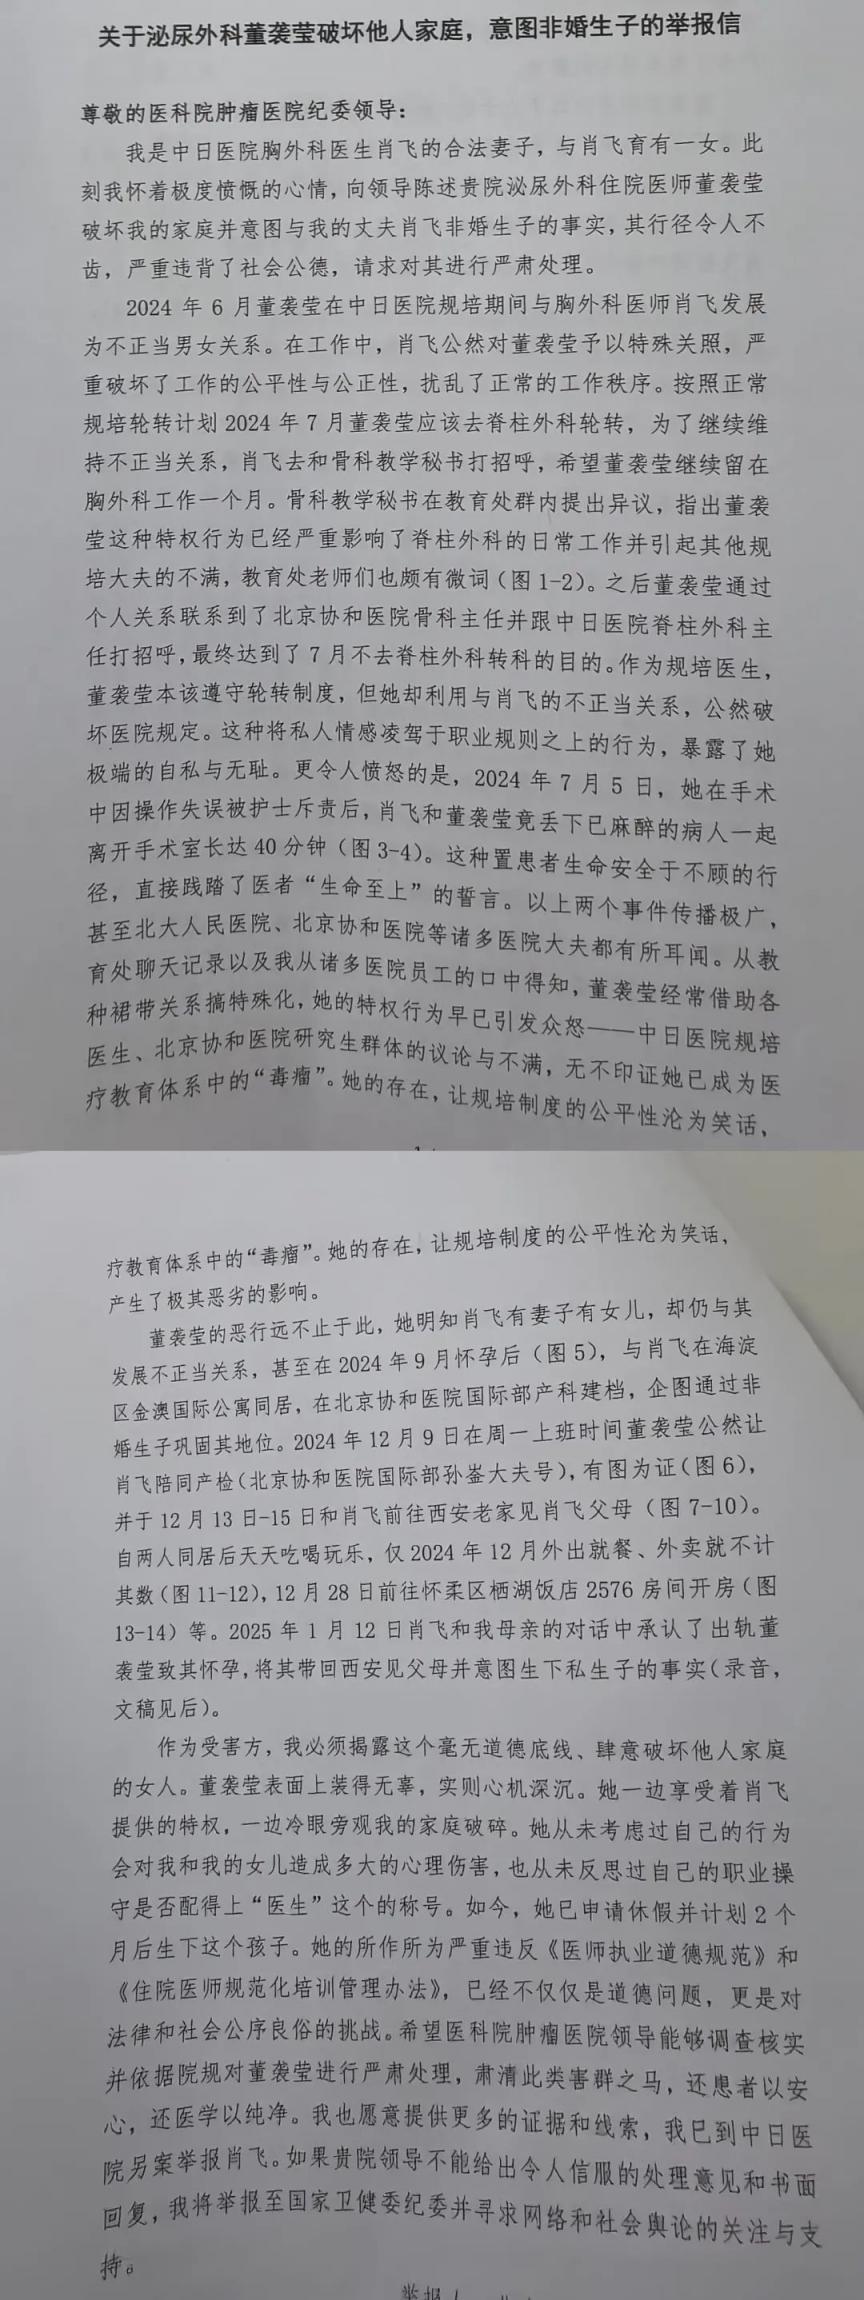 关于泌尿外科董袭莹破坏他人家庭，意图非婚生子的举报信
尊敬的医科院肿瘤医院纪委领导：
我是中日医院胸外科医生肖飞的合法妻子，与肖飞育有一女。此
刻我怀着极度愤慨的心情，向领导陈述贵院泌尿外科住院医师董袭莹
破坏我的家庭并意图与我的丈夫肖飞非婚生子的事实，其行径令人不
齿，严重违背了社会公德，请求对其进行严肃处理。
2024 年 6 月董袭莹在中日医院规培期间与胸外科医师肖飞发展
为不正当男女关系。在工作中，肖飞公然对董袭莹予以特殊关照，严
重破坏了工作的公平性与公正性，扰乱了正常的工作秩序。按照正常
规培轮转计划 2024 年 7 月董袭莹应该去脊柱外科轮转，为了继续维
持不正当关系，肖飞去和骨科教学秘书打招呼，希望董袭莹继续留在
胸外科工作一个月。骨科教学秘书在教育处群内提出异议，指出董袭
莹这种特权行为已经严重影响了脊柱外科的日常工作并引起其他规
培大夫的不满，教育处老师们也颇有微词（图 1-2）。之后董袭莹通过
个人关系联系到了北京协和医院骨科主任并跟中日医院脊柱外科主
任打招呼，最终达到了 7 月不去脊柱外科转科的目的。作为规培医生，
董袭莹本该遵守轮转制度，但她却利用与肖飞的不正当关系，公然破
坏医院规定。这种将私人情感凌驾于职业规则之上的行为，暴露了她
极端的自私与无耻。更令人愤怒的是，2024 年 7 月 5 日，她在手术
中因操作失误被护士斥责后，肖飞和董袭莹竟丢下已麻醉的病人一起
离开手术室长达 40 分钟（图 3-4）。这种置患者生命安全于不顾的行
径，直接践踏了医者“生命至上”的誓言。以上两个事件传播极广，
甚至北大人民医院、北京协和医院等诸多医院大夫都有所耳闻。从教
育处聊天记录以及我从诸多医院员工的口中得知，董袭莹经常借助各
种裙带关系搞特殊化，她的特权行为早已引发众怒——中日医院规培
医生、北京协和医院研究生群体的议论与不满，无不印证她已成为医
疗教育体系中的“毒瘤”。她的存在，让规培制度的公平性沦为笑话，
疗教育体系中的“毒瘤”。她的存在，让规培制度的公平性沦为笑话，
产生了极其恶劣的影响。
董袭莹的恶行远不止于此，她明知肖飞有妻子有女儿，却仍与其
发展不正当关系，甚至在 2024 年 9 月怀孕后（图 5），与肖飞在海淀
区金澳国际公寓同居，在北京协和医院国际部产科建档，企图通过非
婚生子巩固其地位。2024 年 12 月 9 日在周一上班时间董袭莹公然让
肖飞陪同产检（北京协和医院国际部孙崟大夫号），有图为证（图 6），
并于 12 月 13 日-15 日和肖飞前往西安老家见肖飞父母（图 7-10）。
自两人同居后天天吃喝玩乐，仅 2024 年 12 月外出就餐、外卖就不计
其数（图 11-12），12 月 28 日前往怀柔区栖湖饭店 2576 房间开房（图
13-14）等。2025 年 1 月 12 日肖飞和我母亲的对话中承认了出轨董
袭莹致其怀孕，将其带回西安见父母并意图生下私生子的事实（录音，
文稿见后）。
作为受害方，我必须揭露这个毫无道德底线、肆意破坏他人家庭
的女人。董袭莹表面上装得无辜，实则心机深沉。她一边享受着肖飞
提供的特权，一边冷眼旁观我的家庭破碎。她从未考虑过自己的行为
会对我和我的女儿造成多大的心理伤害，也从未反思过自己的职业操
守是否配得上“医生”这个的称号。如今，她已申请休假并计划 2 个
月后生下这个孩子。她的所作所为严重违反《医师执业道德规范》和
《住院医师规范化培训管理办法》，已经不仅仅是道德问题，更是对
法律和社会公序良俗的挑战。希望医科院肿瘤医院领导能够调查核实
并依据院规对董袭莹进行严肃处理，肃清此类害群之马，还患者以安
心，还医学以纯净。我也愿意提供更多的证据和线索，我已到中日医
院另案举报肖飞。如果贵院领导不能给出令人信服的处理意见和书面
回复，我将举报至国家卫健委纪委并寻求网络和社会舆论的关注与支
持。
举报人